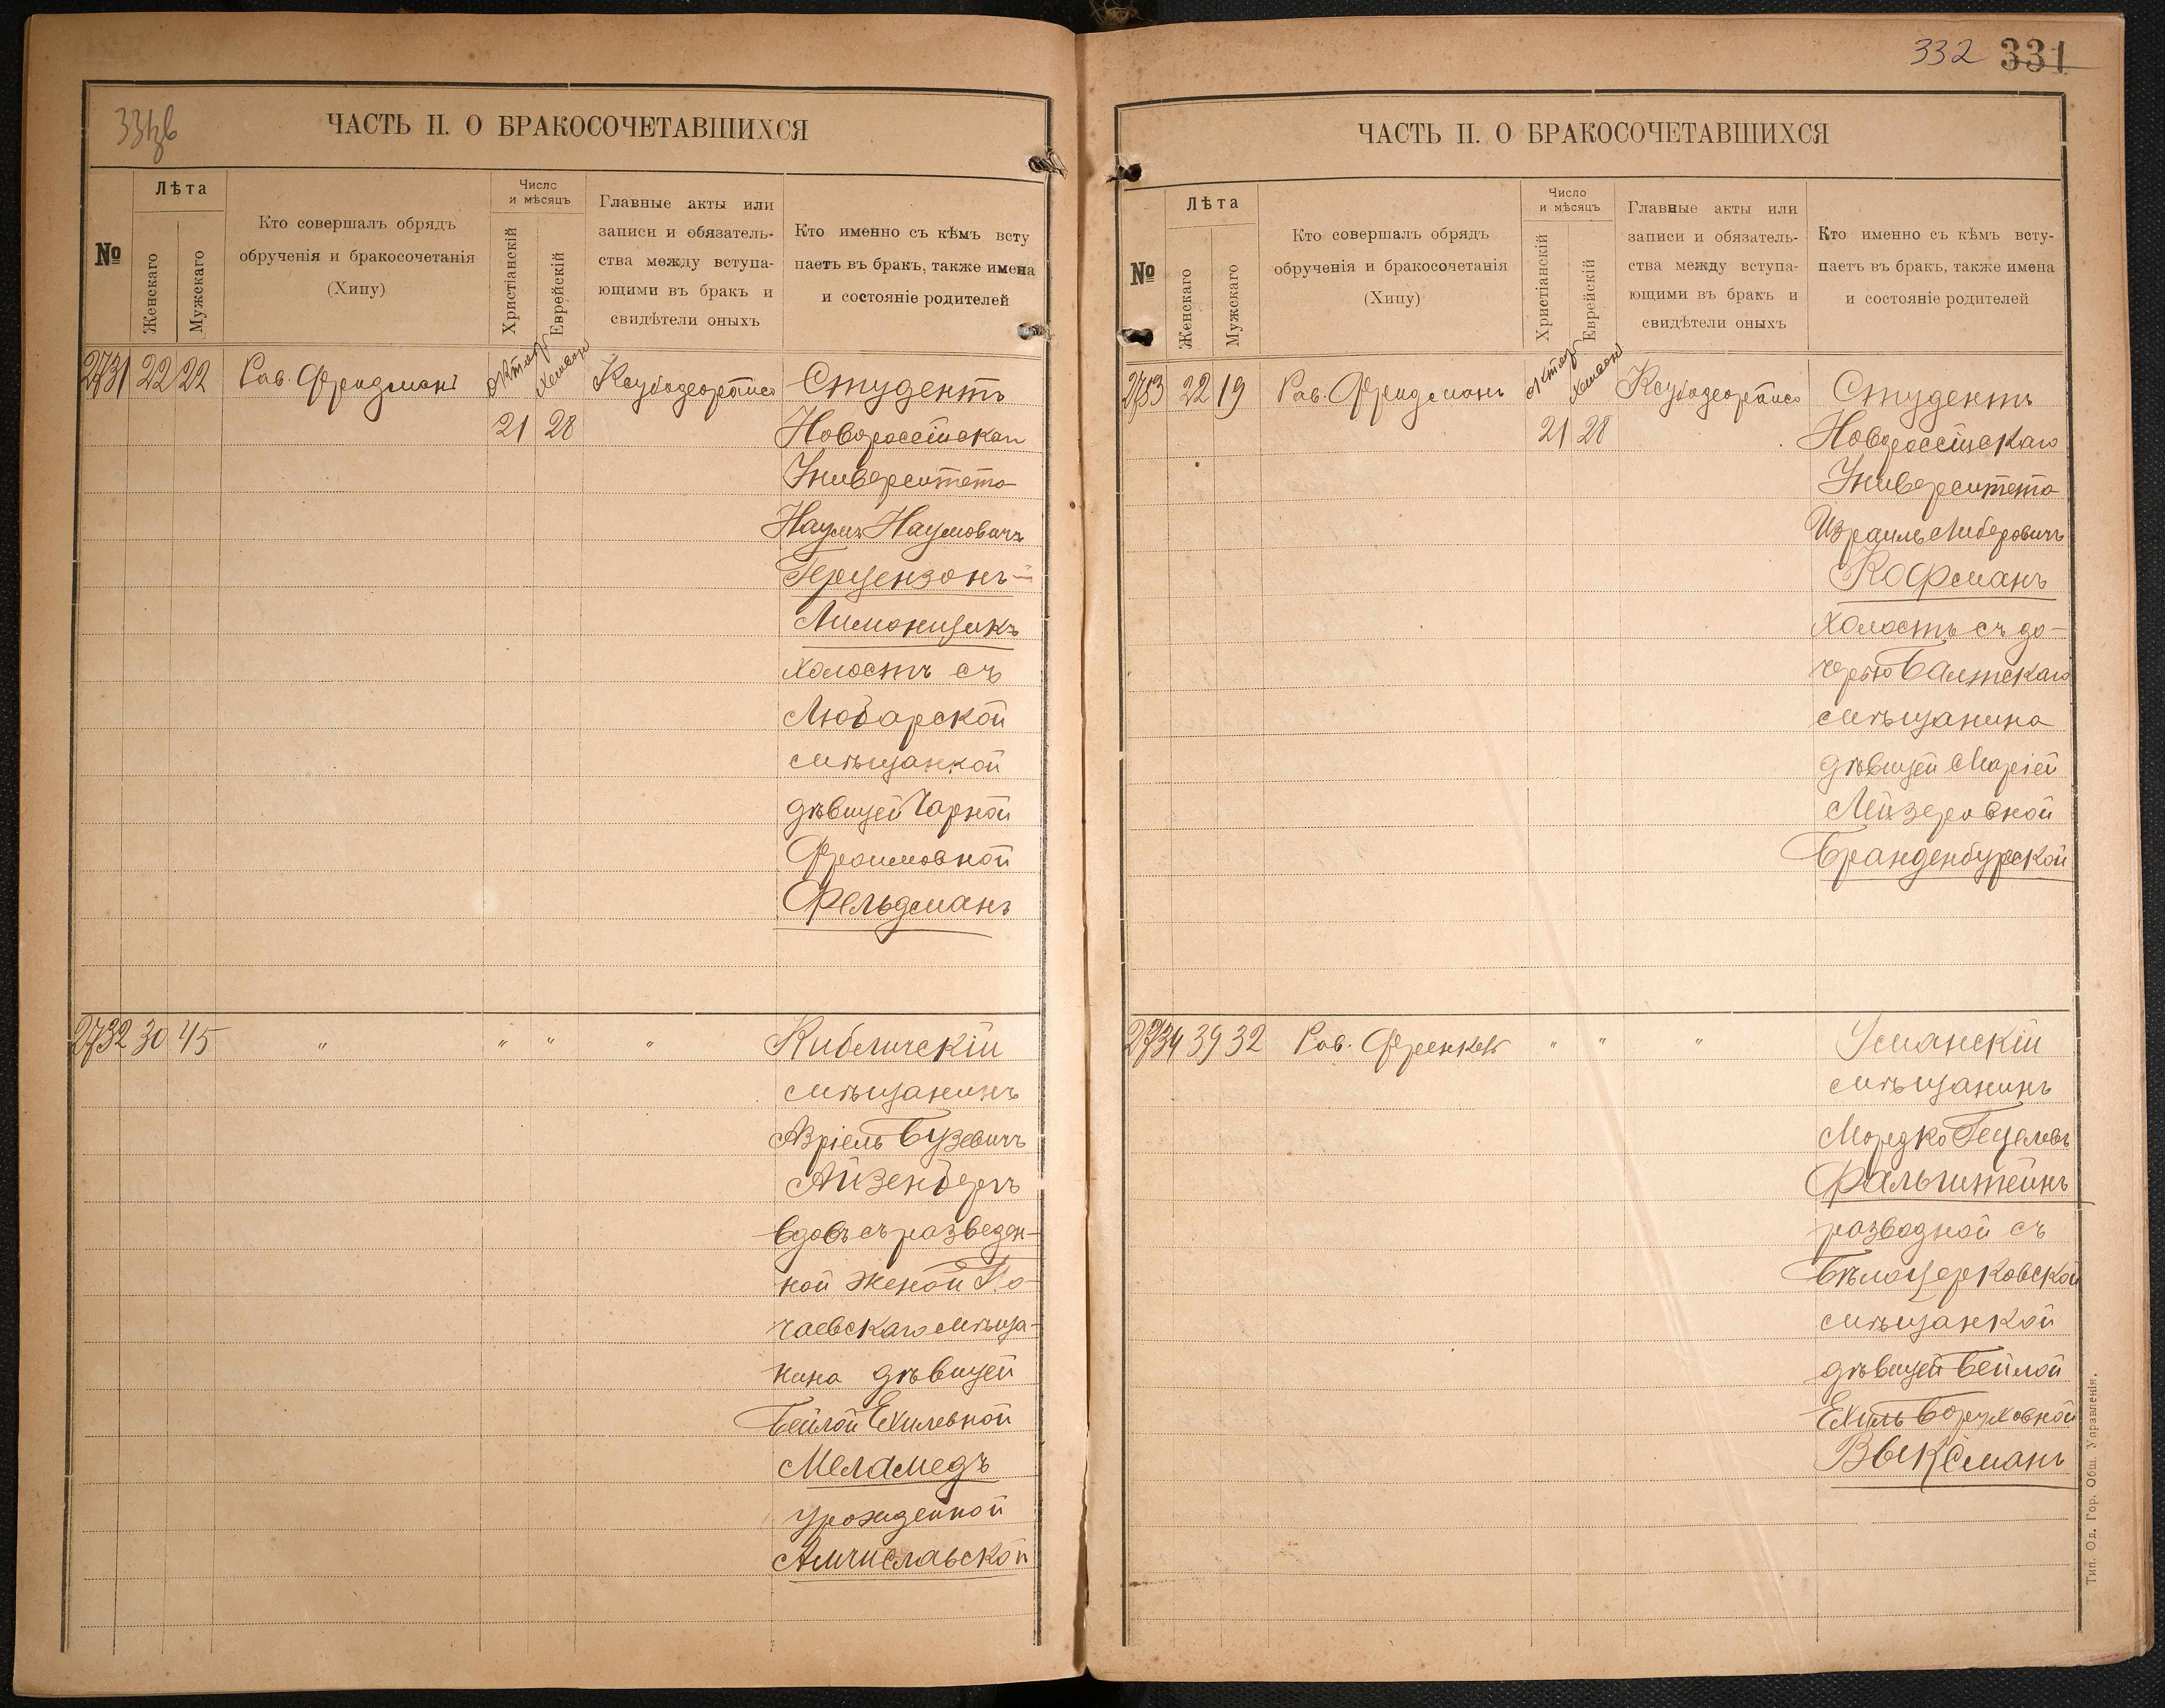 ЧАСТЬ II. О БРАКОСОЧЕТАВШИХСЯ
№
Лѣта
Женскаго
Мужскаго
Кто совершалъ обрядъ
обрученія и бракосочетанія
(Хипу)
Число
и мѣсяцъ
Христіанскій
Еврейскій
Главные акты или
записи и обязатель-
ства между вступа-
ющими въ бракъ и
свидѣтели оныхъ
Кто именно съ кѣмъ всту
паетъ въ бракъ, также имена
и состояніе родителей
2731 22 22 Рав. Фридманъ
21 28
Студентъ
Новороссійскаго
Университета
Наумъ Наумовичъ
Герцензонъ-
Лимонщикъ
холостъ съ
Любарской
мѣщанкой
дѣвицей Чарной
Фроимовной
Фельдманъ
2732 30 45 " " " " Кибличскій
мѣщанинъ
Азріель Бузевичъ
Айзенбергъ
вдовъ съ разведен-
ной женой По-
чаевскаго мѣща-
нина дѣвицей
Бейлой Ехилевной
Меламедъ
урожденной
Амчиславской
332 331
ЧАСТЬ II. О БРАКОСОЧЕТАВШИХСЯ
№
Лѣта
Женскаго
Мужскаго
Кто совершалъ обрядъ
обрученія и бракосочетанія
(Хипу)
Число
и мѣсяцъ
Христіанскій
Еврейскій
Главные акты или
записи и обязатель-
ства между вступа-
ющими въ бракъ и
свидѣтели оныхъ
Кто именно съ кѣмъ всту-
паетъ въ бракъ, также имена
и состояніе родителей
22 19 Рав. Фридманъ
21 28
Студентъ
Новороссійскаго
Университета
Израиль Либеровичъ
Кофманъ
холостъ съ до-
черью Балтскаго
мѣщанина
дѣвицей Маріей
Лейзеровной
Бранденбургской
2734 39 32 Рав. Френкель " " " Уманскій
мѣщанинъ
Мордко Гецелевъ
Фальштейнъ
разводной съ
Бѣлоцерковской
мѣщанкой
дѣвицей Бейлой
Ехиль Боруховной
Выксманъ
Тип. Од. Гор. Общ. Управленія.